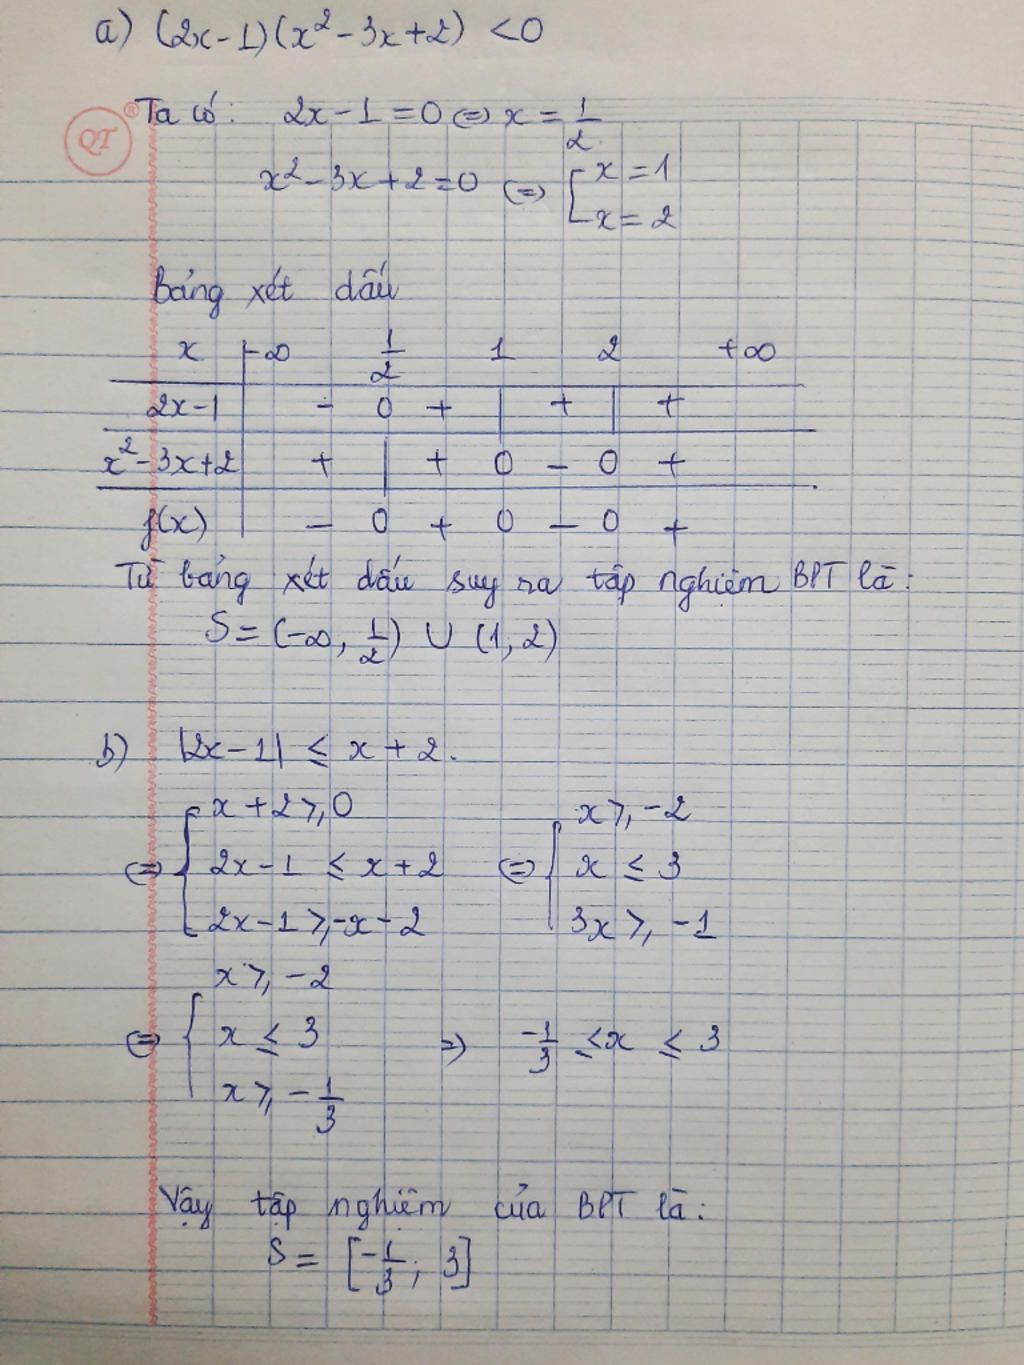 a) (2x-1)(x²-3x+2) <0
QT ®
Ta có: 2x-1=0 (=) x = 1/2
x²-3x+2=0 (=) [ x=1
x=2
Bảng xét dấu
x -∞ 1/2 1 2 +∞
2x-1 - 0 + | + | +
x²-3x+2 + | + 0 - 0 +
f(x) - 0 + 0 - 0 +
Từ bảng xét dấu suy ra tập nghiệm BPT là:
S = (-∞, 1/2) ∪ (1, 2)
b) |2x-1| ≤ x+2.
(=) { x+2 ≥ 0
2x-1 ≤ x+2
2x-1 ≥ -x-2
(=) { x ≥ -2
x ≤ 3
3x ≥ -1
(=) { x ≥ -2
x ≤ 3
x ≥ -1/3
=) -1/3 ≤ x ≤ 3
Vậy tập nghiệm của BPT là:
S = [-1/3; 3]